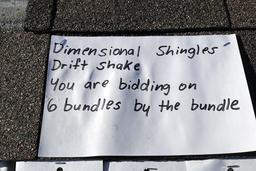 Dimensional Shingles
Drift shake
You are bidding on
6 bundles by the bundle